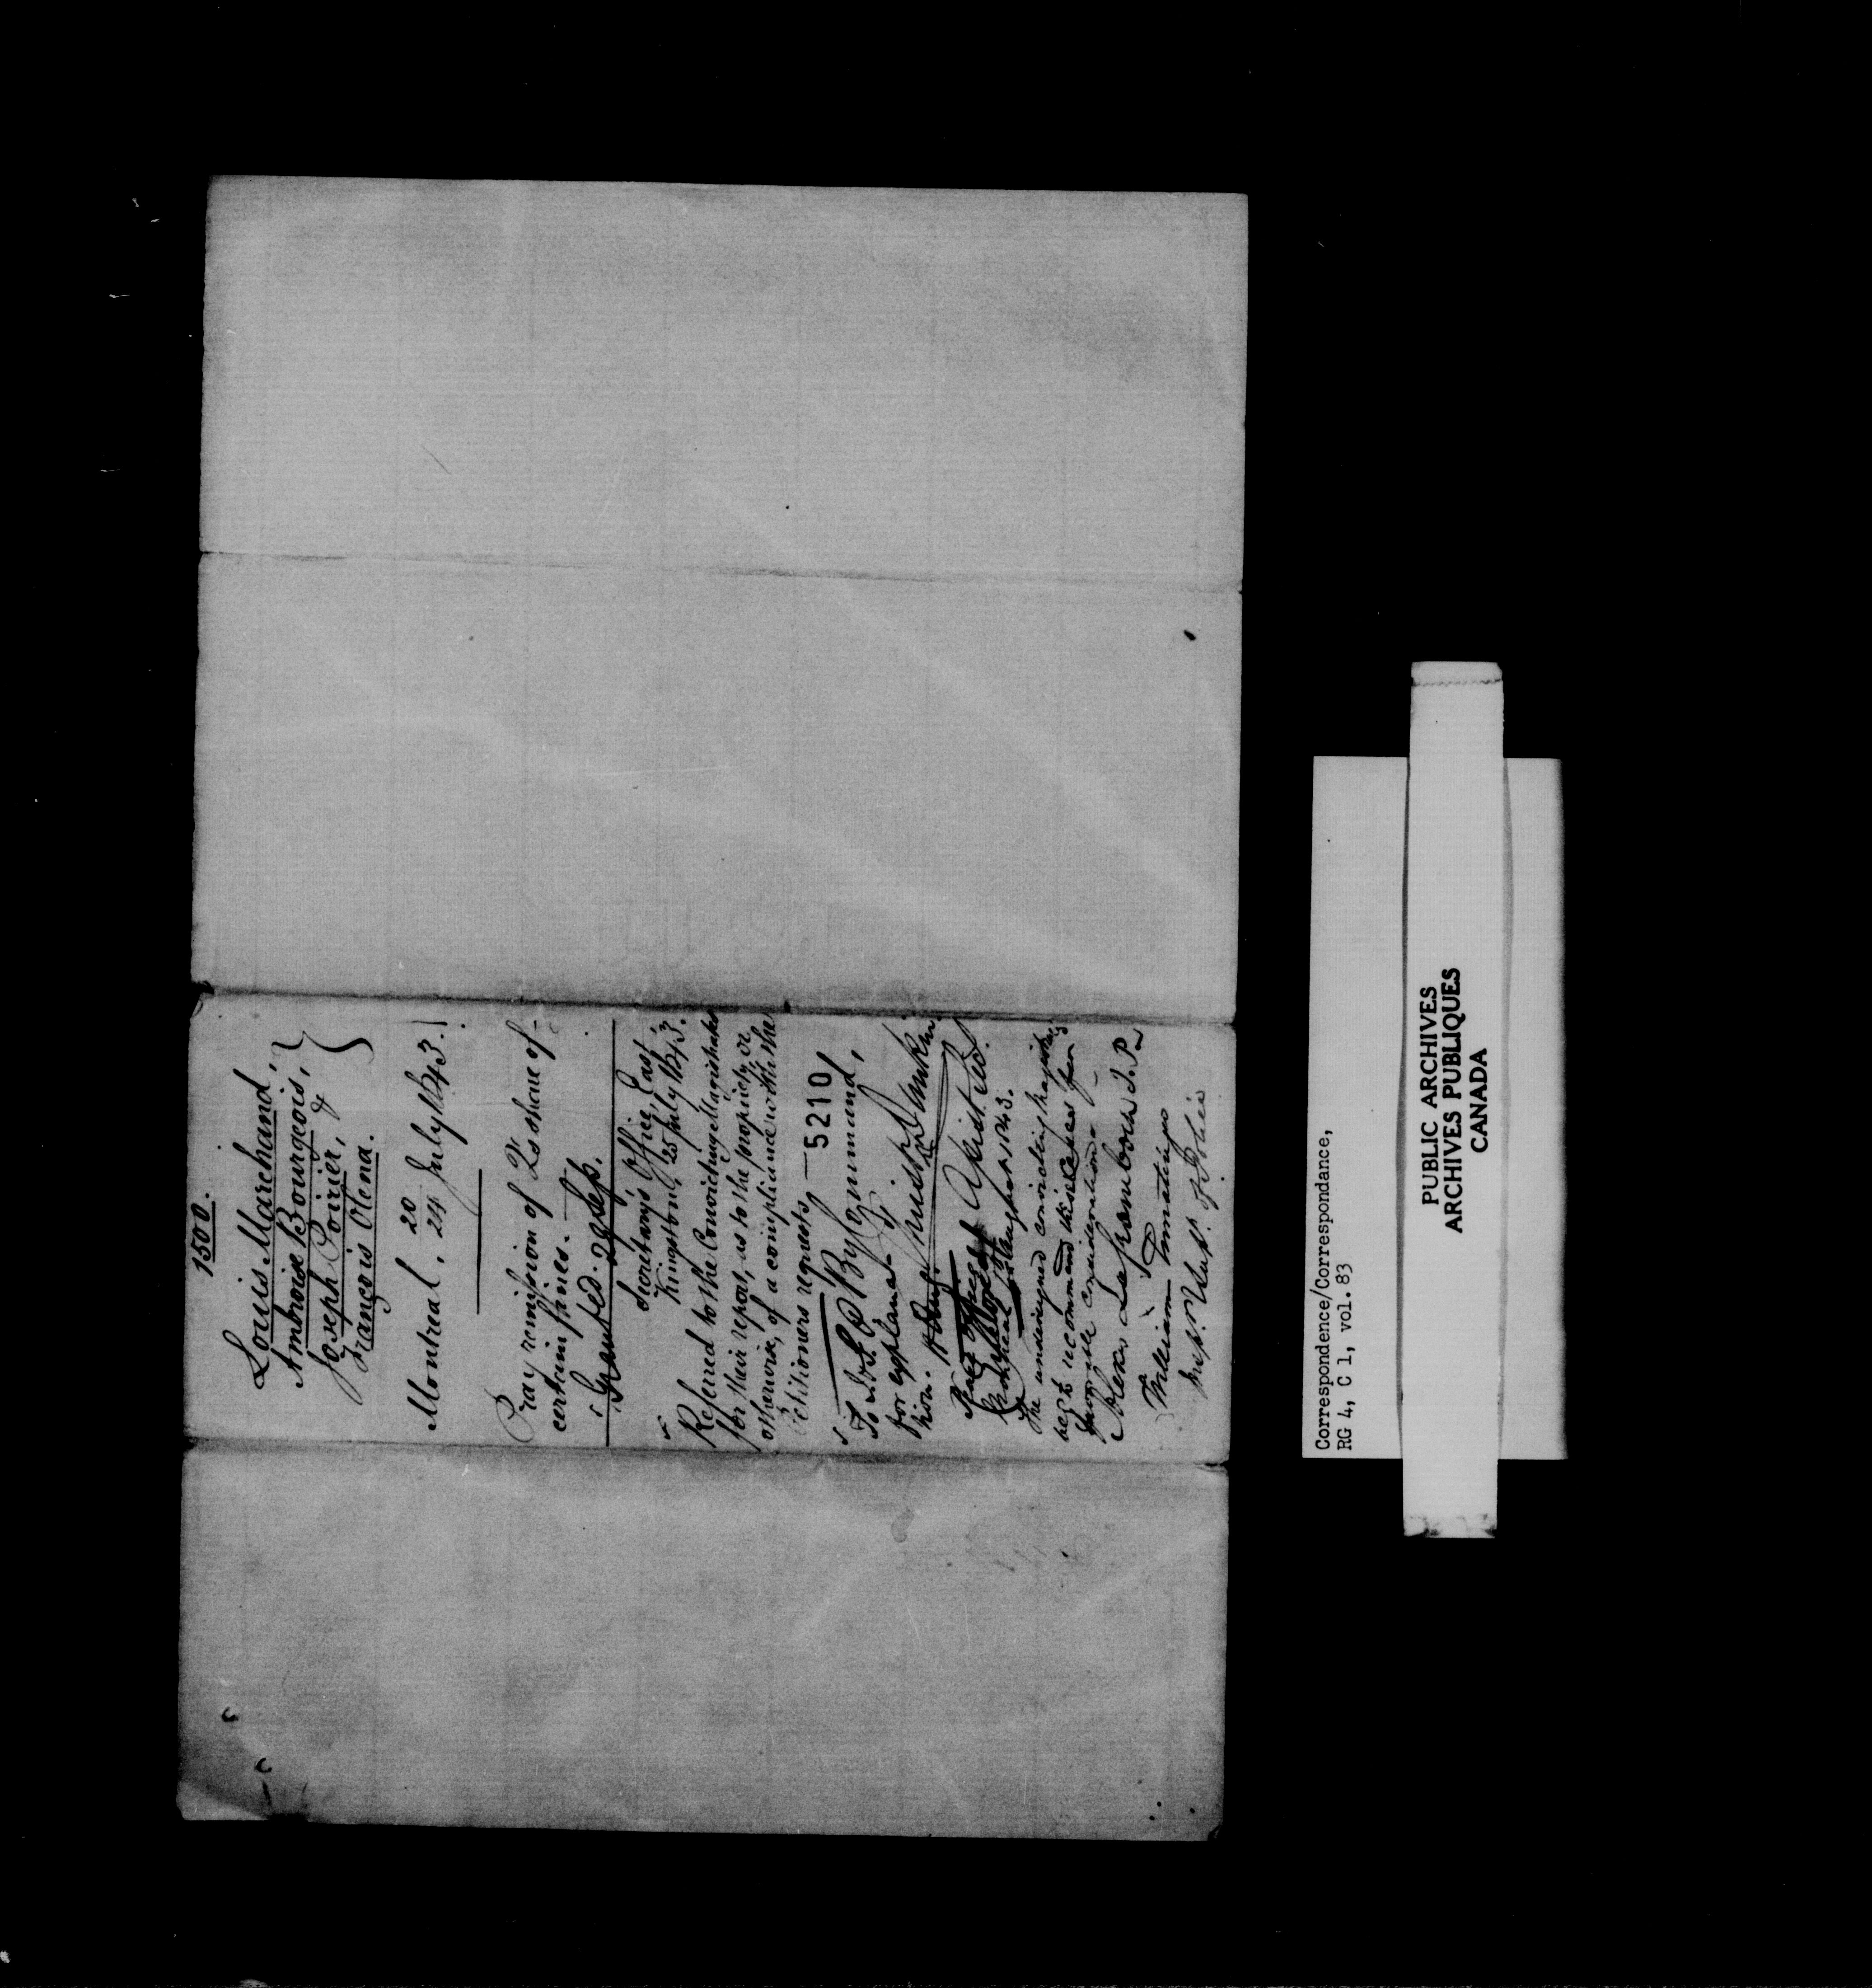 1500.
Louis Marchand,
Ambroise Bourgeois,
Joseph Poirier, &
François Olena.
Montreal, 20 24 July 1843.
Pray remission of Qs share of
certain fines.
Granted. 29 Sep.
Secretary's Office, East,
Kingston, 25 July 1843.
Referred to the Convicting Magistrates
for their report, as to the propriety or
otherwise, of a compliance with the
Petitioners requests,
5210
By Command,
for explana-
tion.
Peace Office
Montreal August 1843.
The undersigned convicting magistrates
beg to recommend this case for
favorable consideration
William
Insp. & Supt. of Police
Correspondence/Correspondance,
RG 4, C 1, vol. 83
PUBLIC ARCHIVES
ARCHIVES PUBLIQUES
CANADA